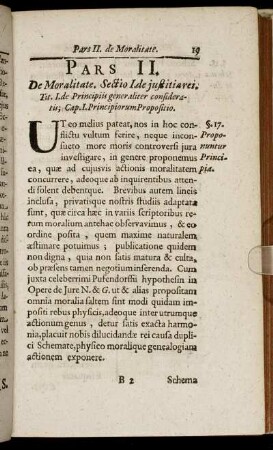 Pars II. de Moralitate. 19
PARS II.
De Moralitate. Sectio I. de justitia rei.
Tit. I. de Principiis generaliter considera-
tis; Cap. I. Principiorum Propositio.
UT eo melius pateat, nos in hoc con- §. 17.
flictu vultum ferire, neque incon- Propo-
sueto more moris controversi jura nuntur
investigare, in genere proponemus Princi-
ea, quæ ad cujusvis actionis moralitatem pia.
concurrere, adeoque ab inquirentibus atten-
di solent debentque. Brevibus autem lineis
inclusa, privatisque nostris studiis adaptata
sunt, quæ circa hæc in variis scriptoribus re-
rum moralium antehac observavimus, & eo
ordine posita, quem maxime naturalem
æstimare potuimus; publicatione quidem
non digna, quia non satis matura & culta,
ob præsens tamen negotium inserenda. Cum
juxta celeberrimi Pufendorffii hypothesin in
Opere de Jure N. & G. ut & alias propositam
omnia moralia saltem sint modi quidam impo-
siti rebus physicis, adeoque inter utrumque
actionum genus, detur satis exacta harmo-
nia, placuit nobis dilucidandæ rei causa dupli-
ci Schemate, physico moralique genealogiam
actionem exponere.
B 2 Schema
S.